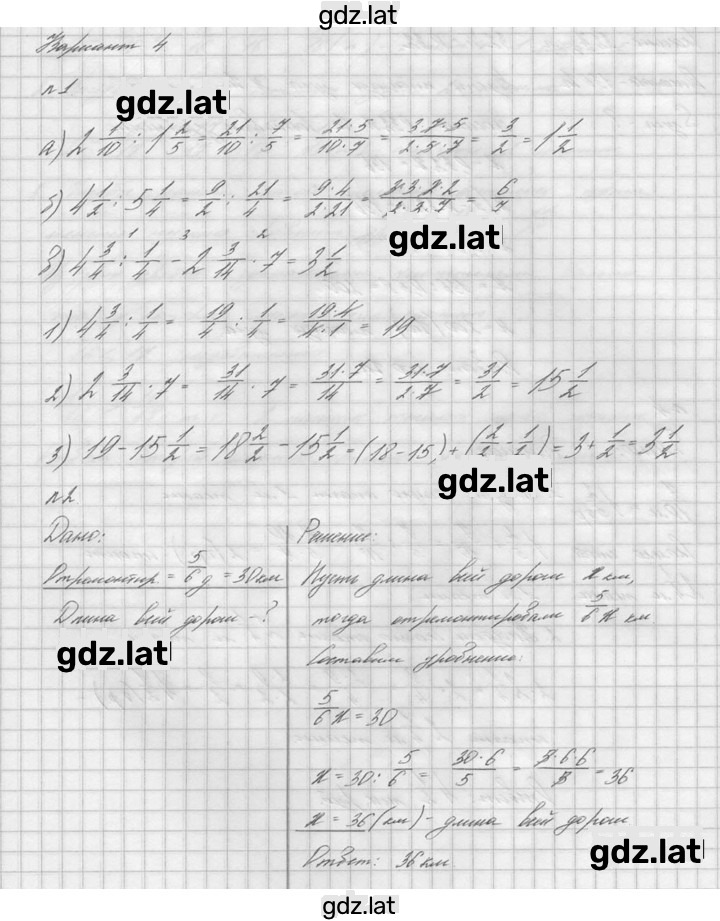 gdz.lat
Вариант 4
№1
gdz.lat
а) 2 1/10 : 1 2/5 = 21/10 : 7/5 = 21·5/10·7 = 3·7·5/2·5·7 = 3/2 = 1 1/2
б) 4 1/2 : 5 1/4 = 9/2 : 21/4 = 9·4/2·21 = 3·3·2·2/2·3·7 = 6/7
gdz.lat
в) 4 3/4 : 1/4 - 2 3/14 · 7 = 3 1/2
1) 4 3/4 : 1/4 = 19/4 : 1/4 = 19·4/4·1 = 19
2) 2 3/14 · 7 = 31/14 · 7 = 31·7/14 = 31·7/2·7 = 31/2 = 15 1/2
3) 19 - 15 1/2 = 18 2/2 - 15 1/2 = (18 - 15) + (2/2 - 1/2) = 3 + 1/2 = 3 1/2
gdz.lat
№2
Дано:
Отремонтир. = 5/6 д = 30 км
Длина всей дороги - ?
gdz.lat
Решение:
Пусть длина всей дороги x км,
тогда отремонтировали 5/6 x км
Составим уравнение:
5/6 x = 30
x = 30 : 5/6 = 30·6/5 = 5·6·6/5 = 36
x = 36 (км) - длина всей дороги
gdz.lat
Ответ: 36 км
gdz.lat